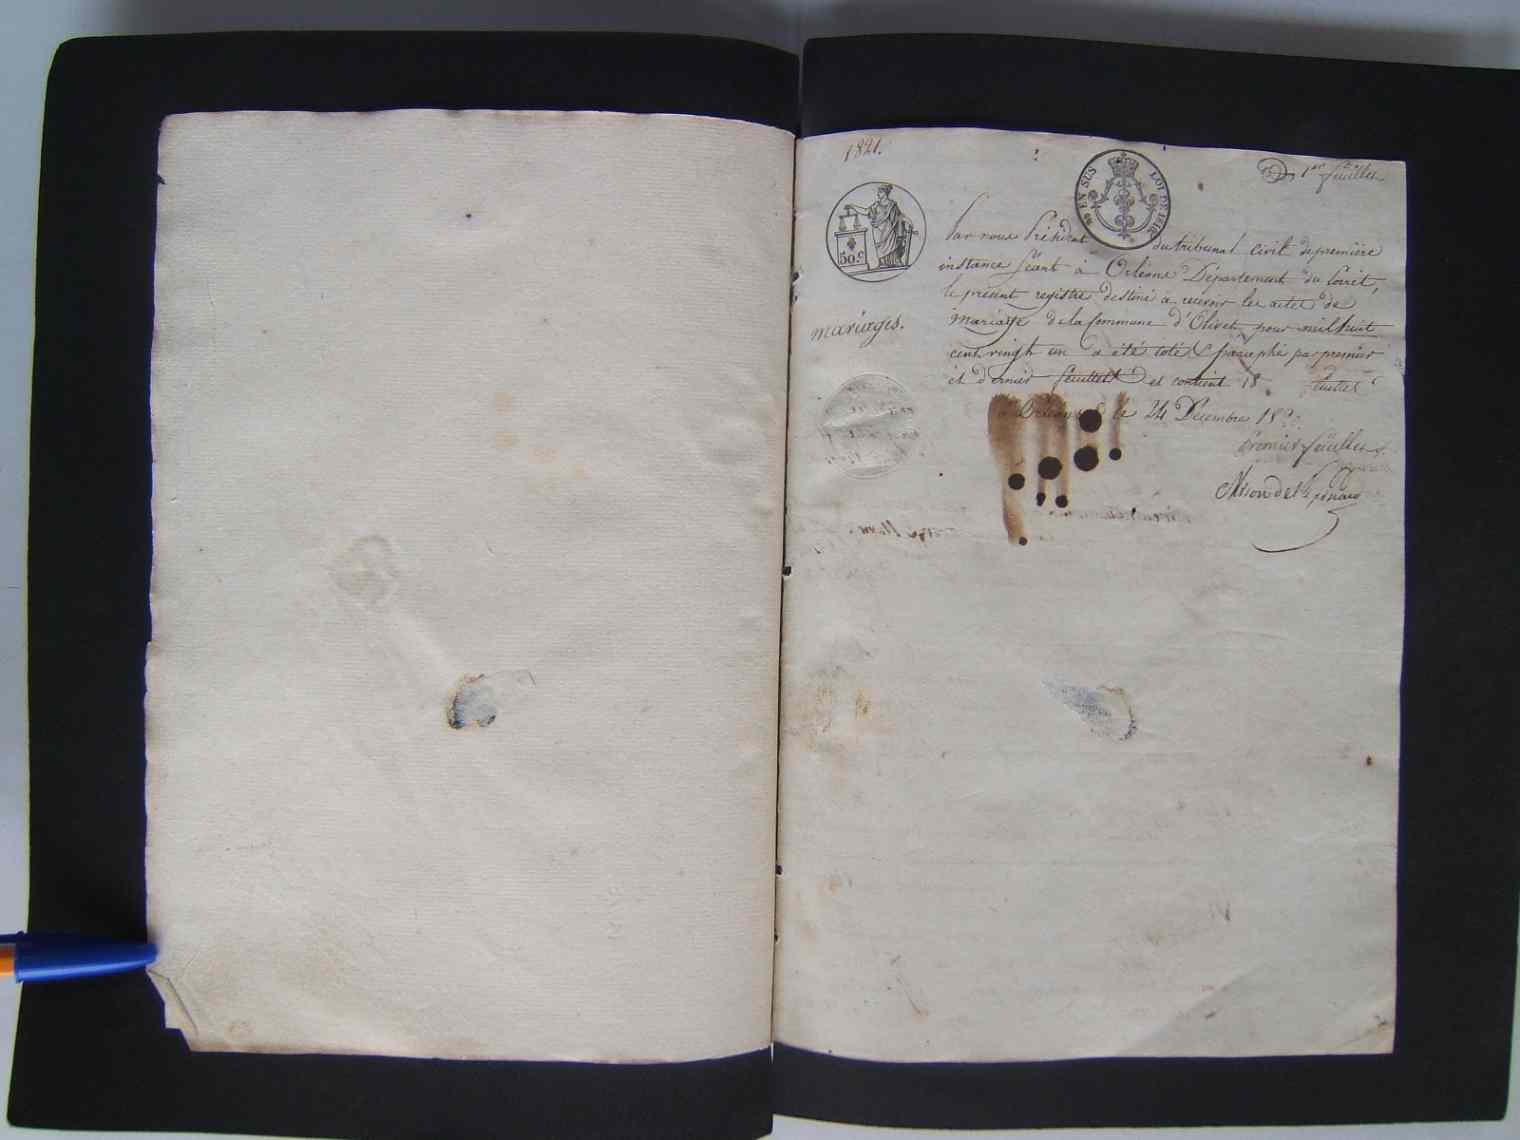 1821.
1er feuillet
EN SUS LOI DE 1816
50.c
mariages.
Par nous Président du tribunal civil de première
instance séant à Orléans Département du Loiret,
le présent registre destiné à recevoir les actes de
Mariage de la Commune d'Olivet, pour mil huit
cent vingt un a été coté & paraphé par premier
et dernier feuillet et contient 18 feuillets
à Orléans le 24 Décembre 18
Premier feuillet